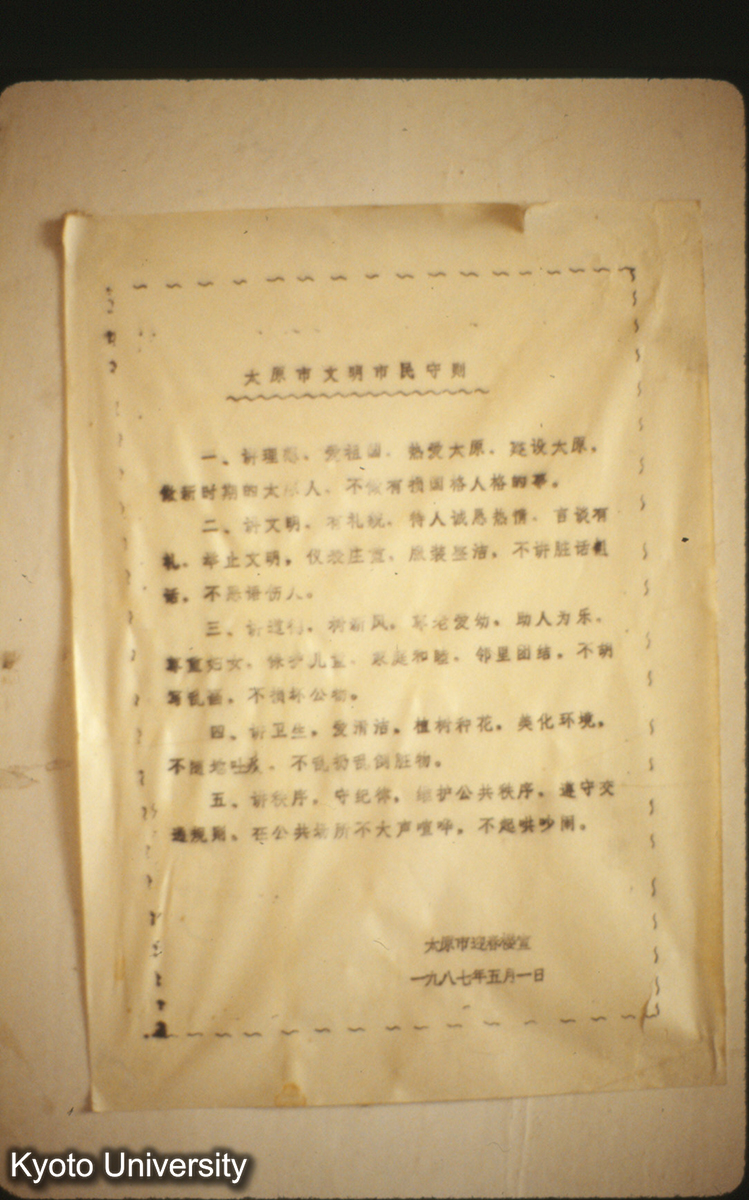 太原市文明市民守则
一、讲理想、爱祖国、热爱太原、建设太原，
做新时期的太原人、不做有损国格人格的事。
二、讲文明、有礼貌、待人诚恳热情、言谈有
礼、举止文明，仪表庄重、服装整洁，不讲脏话粗
话，不恶语伤人。
三、讲道德，树新风，尊老爱幼，助人为乐、
尊重妇女、保护儿童、家庭和睦、邻里团结，不胡
写乱画，不损坏公物。
四、讲卫生，爱清洁，植树种花，美化环境，
不随地吐痰、不乱扔乱倒脏物。
五、讲秩序，守纪律，维护公共秩序、遵守交
通规则、在公共场所不大声喧哗，不起哄吵闹。
太原市迎春楼宣
一九八七年五月一日
Kyoto University